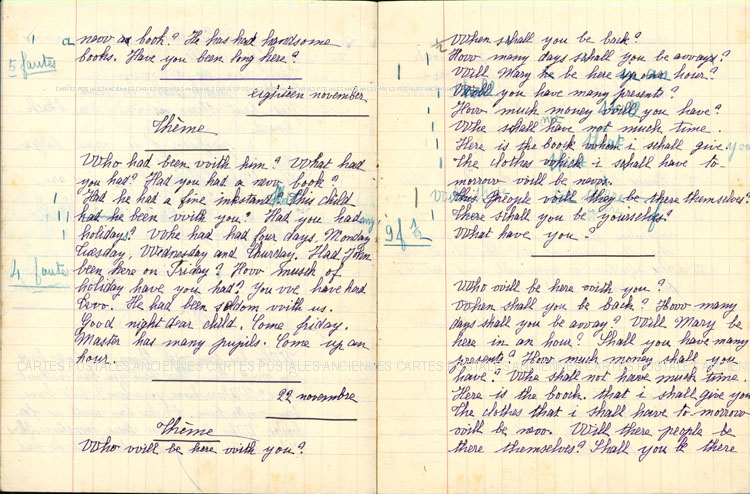 new a book? He has had handsome
books. Have you been long here?
5 fautes
eighteen november
Thème
Who had been with him? What had
you had? Had you had a new book?
Had he had a fine inkstand? this child
had he been with you? Had you had any
holidays? Whe had had four days, Monday
Tuesday, Wednesday and Thursday. Had John
been here on Friday? How musch of
holiday have you had? You wve have had
two. He had been seldom with us.
4 fautes
Good night dear child. Come friday.
Master has many pupils. Come up an
hour.
22 novembre
Thème
Who will be here with you?
When shall you be back?
How many days schall you be away?
Will Mary he be here up an hour?
Will you have many presents?
How much money will you have?
Whe schall not have not much time.
Here is the book what i schall give you
the clothes which i schall have to-
morrow will be new.
this people will they be there themselves?
there shall you be yourselfes?
What have you?
9 f ½
Who will be here with you?
When shall you be back? How many
days shall you be away? Will Mary be
here in an hour? Shall you have many
presents? How much money shall you
have? Whe shall not have much time.
Here is the book. that i shall give you
the clothes that i shall have to morrow
will be new. Will there people be
there themselves? Shall you be there
CARTES POSTALES ANCIENNES